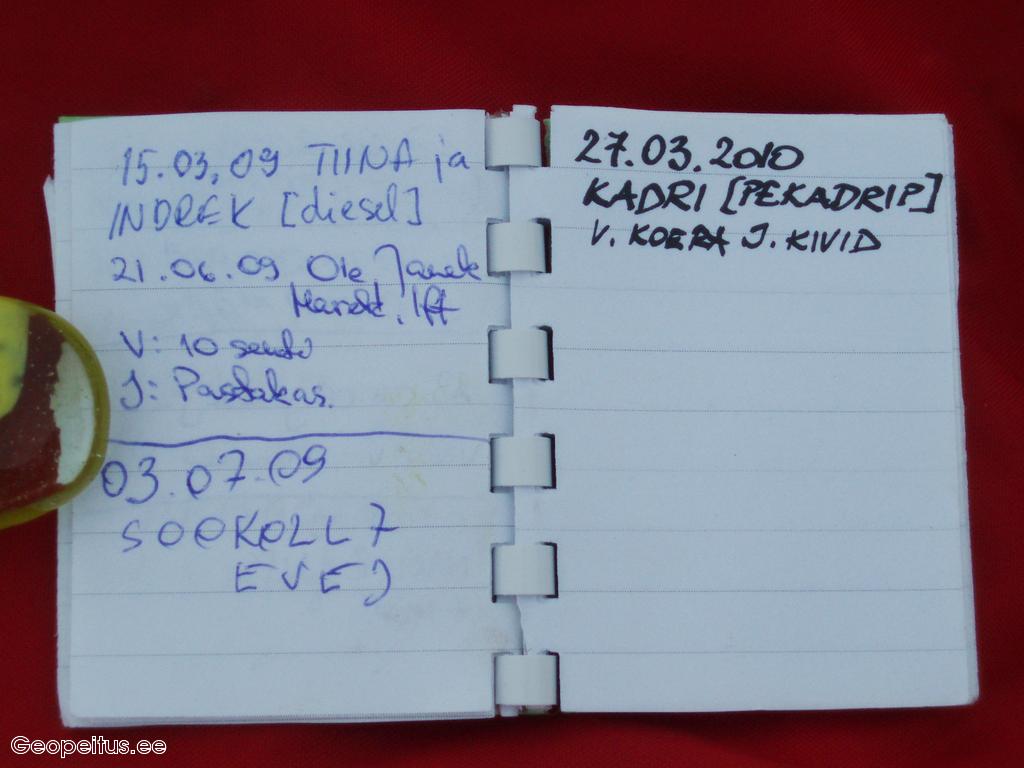 15.03.09 TIINA ja
INDREK [diesel]
21.06.09 Ole, Janek
V: 10 senti
J: Pastakas.
03.07.09
SOOKOLL7
EVEJ
27.03.2010
KADRI [PEKADRIP]
V. KOERA J. KIVID
Geopeitus.ee